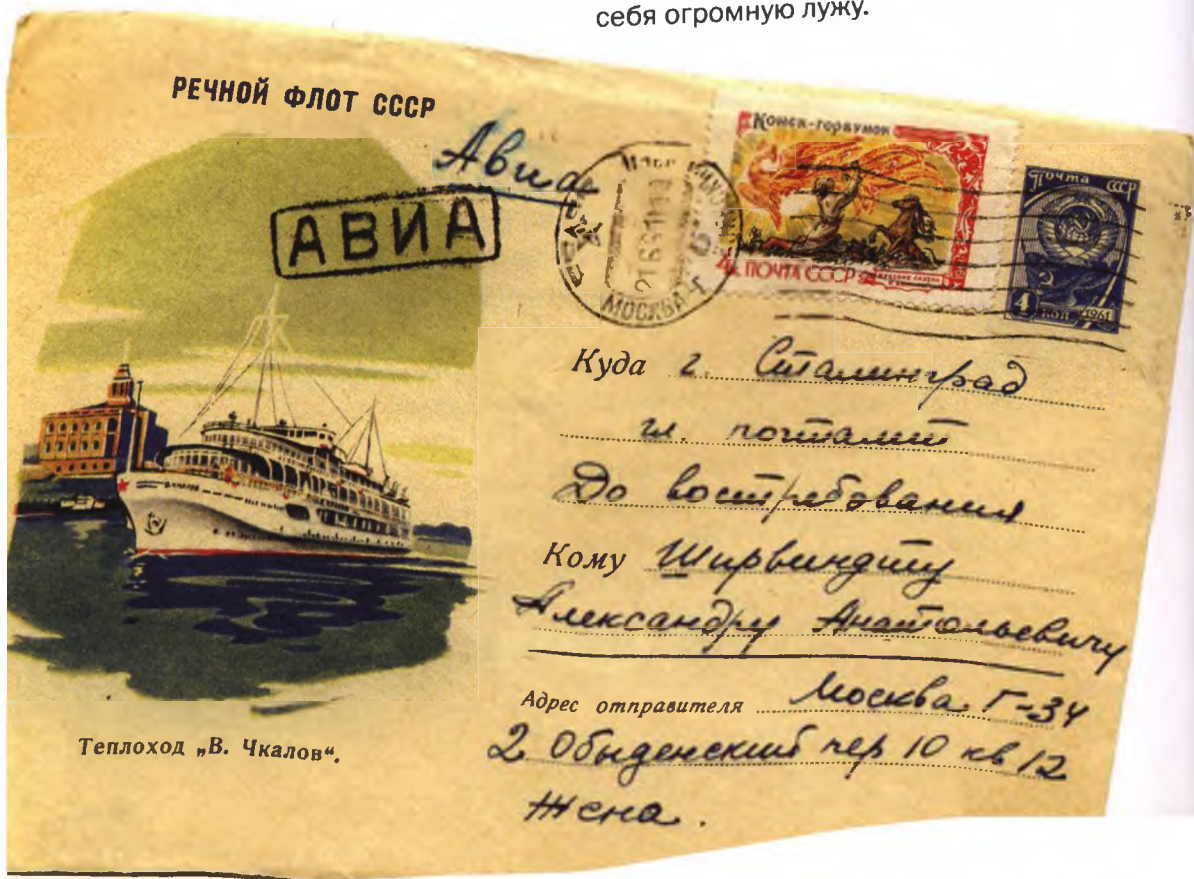 себя огромную лужу.
РЕЧНОЙ ФЛОТ СССР
Авиа
АВИА
МОСКВА-Г
Конек-горбунок
4к. ПОЧТА СССР
Почта СССР
4 коп 1961
Куда г. Сталинград
гл. почтамт
До востребования
Кому Ширвиндту
Александру Анатольевичу
Адрес отправителя Москва Г-34
2 Обыденский пер 10 кв 12
Жена.
Теплоход „В. Чкалов“.